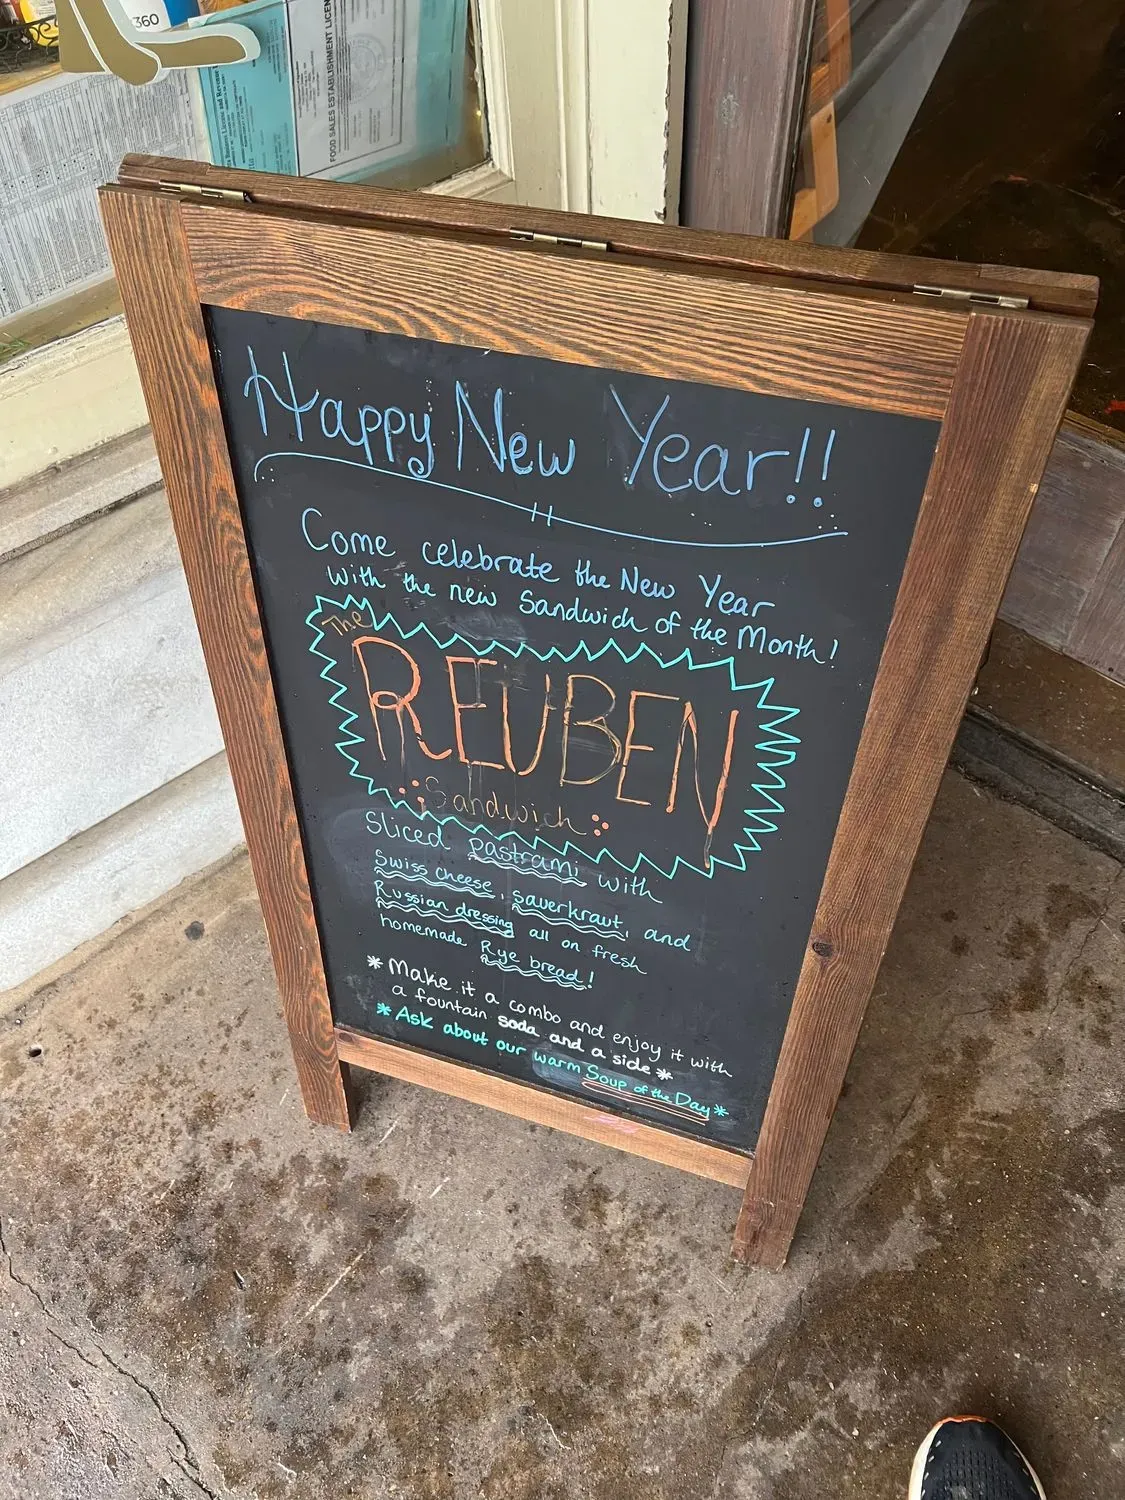 360
FOOD SALES ESTABLISHMENT LICEN
Happy New Year!!
Come celebrate the New Year
with the new Sandwich of the Month!
The
REUBEN
Sandwich
Sliced pastrami with
Swiss cheese, sauerkraut, and
Russian dressing all on fresh
homemade Rye bread!
*Make it a combo and enjoy it with
a fountain soda and a side*
*Ask about our warm Soup of the Day*